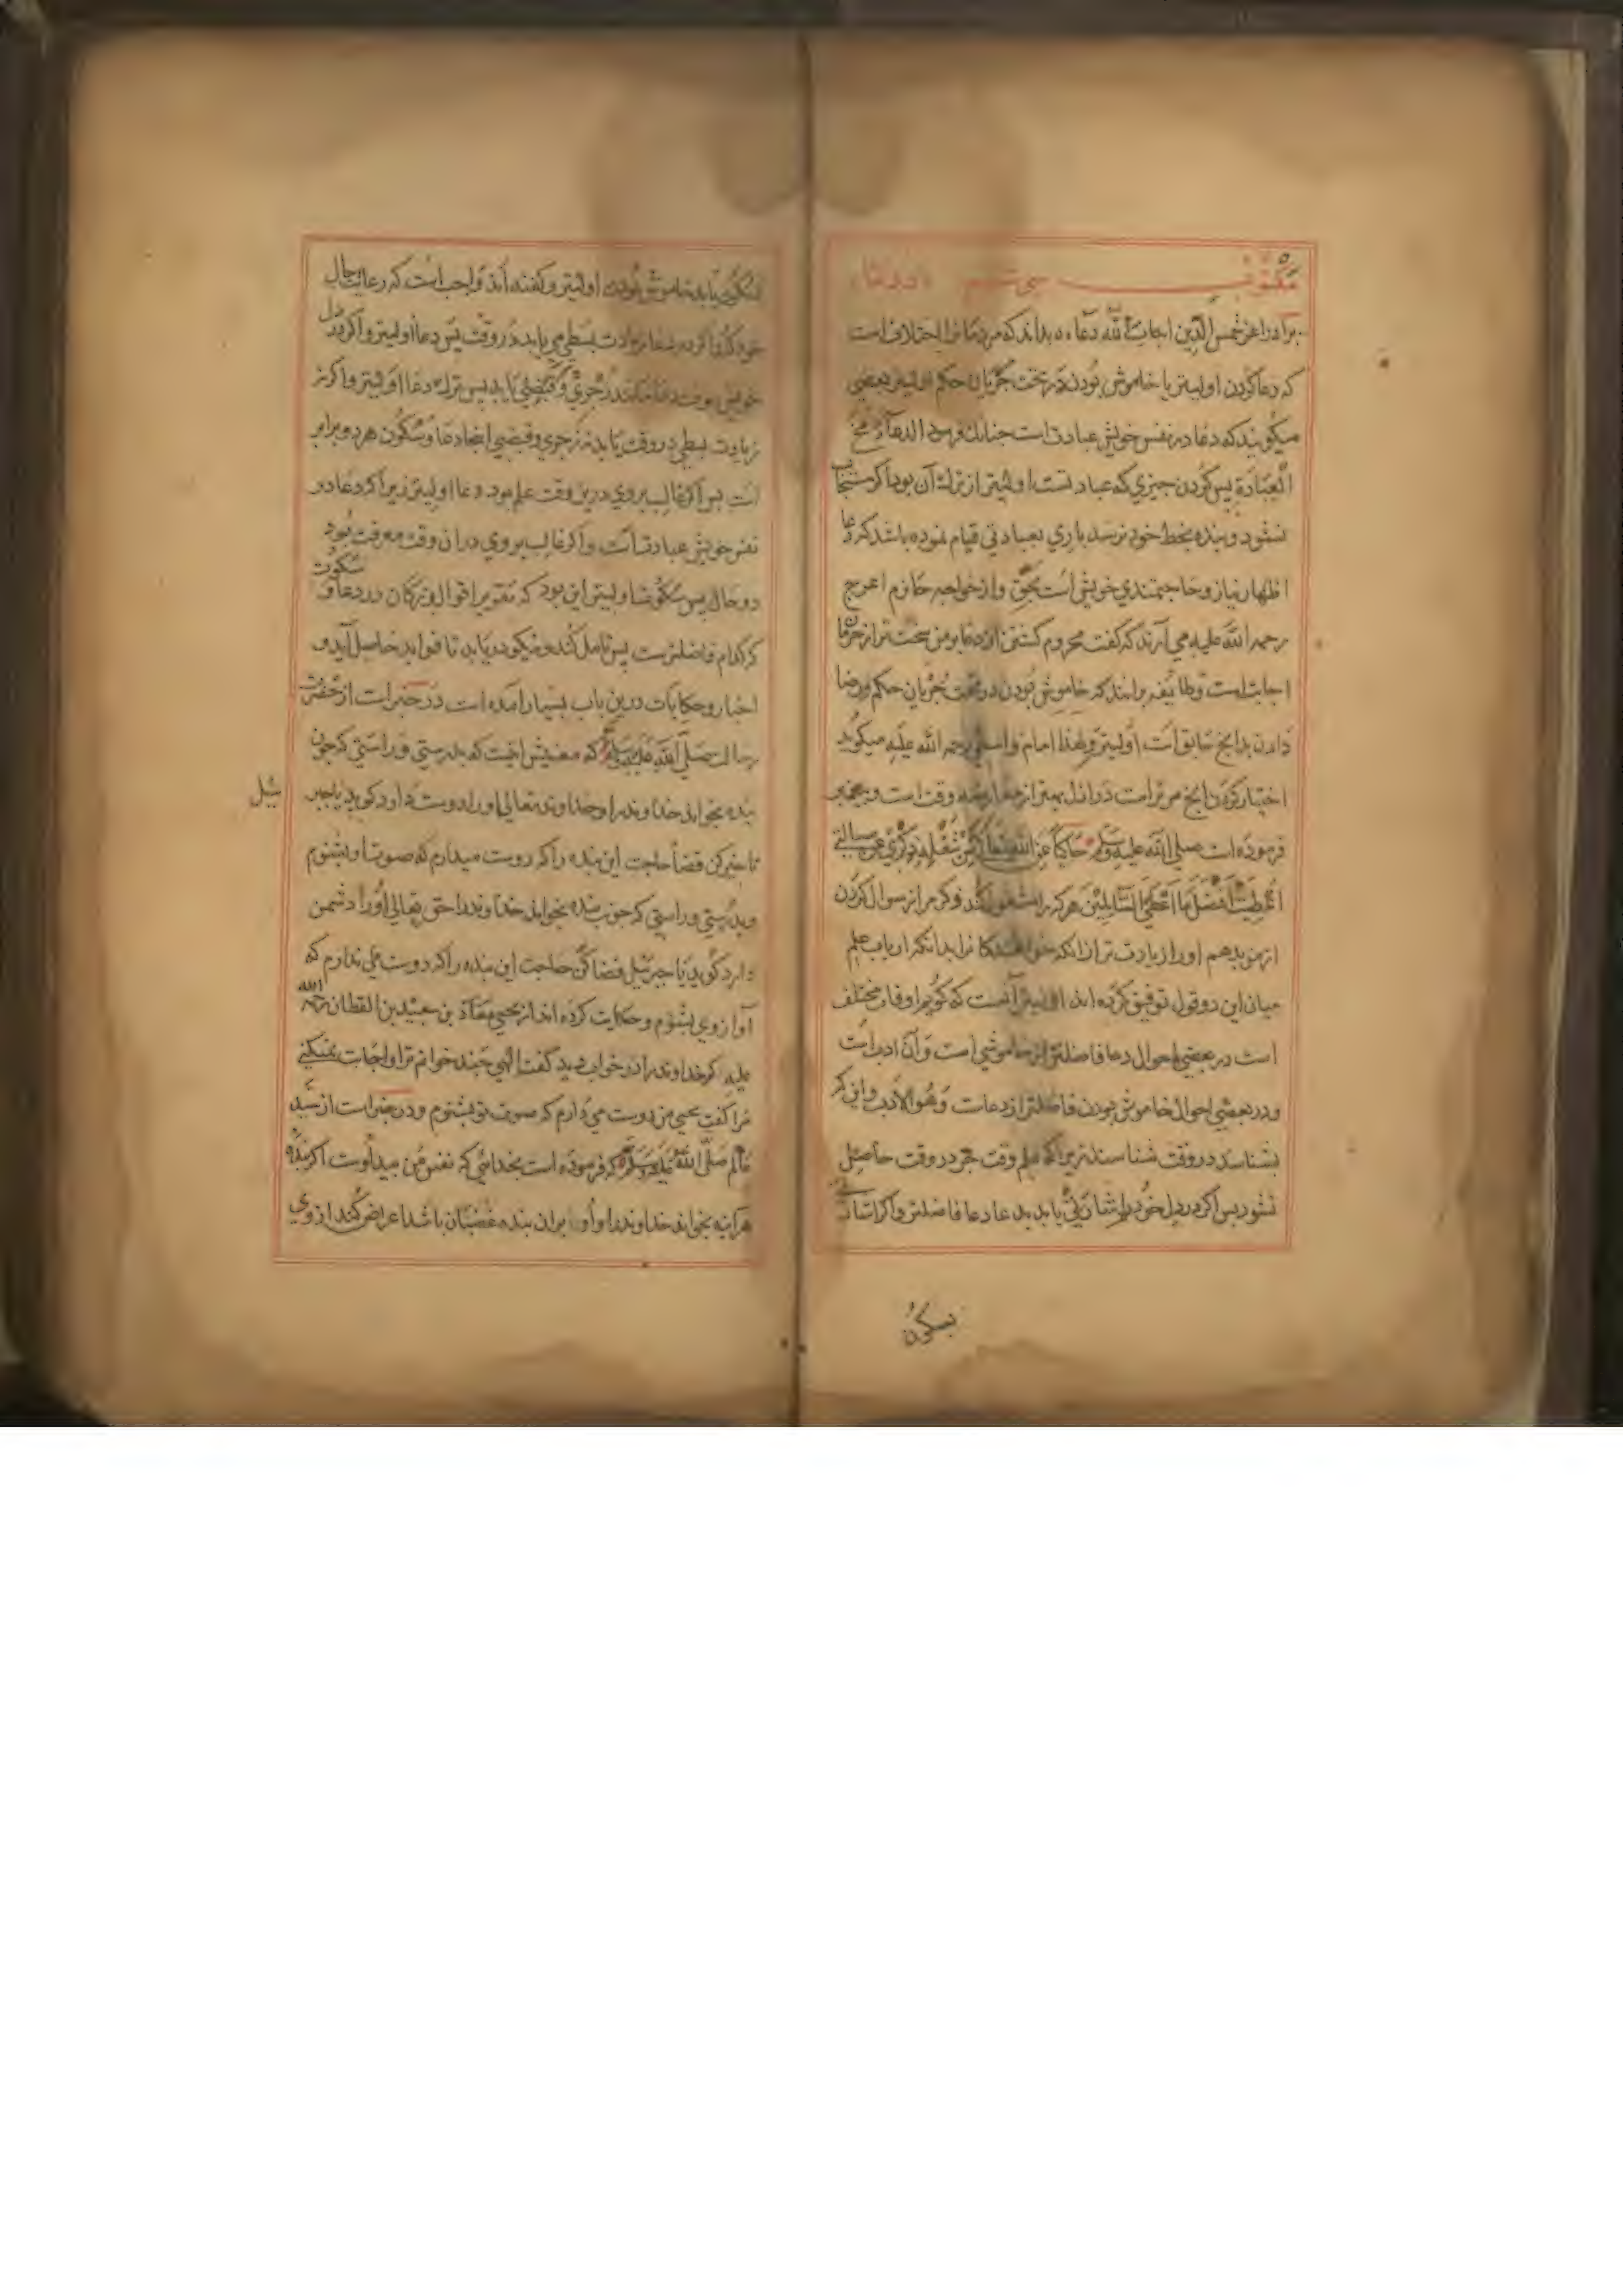 مکتوب سی و سوم در دعا
برادرم اعز شمس الدین اجاب الله دعاءه بداند که مردمانرا اختلاف است
که دعا کردن اولیتر یا خاموش بودن در تحت جریان حکم اولیتر بعضی
میکویند که دعا در نفس خویش عبادت است جنانک فرمود الدعاء مخ
العبادة پس کردن جیزی که عبادتست اولیتر از ترک آن بود اکر مستجاب
نشود و بنده بحظ خود نرسد باری بعبادتی قیام نموده باشد که دعا
اظهار نیاز و حاجتمندی خویش است بحق و از خواجه حازم اعرج
رحمه الله علیه می آرند که کفت محروم کشتن از دعا بر من سخت تر از حرمان
اجابت است و طائیفه برانند که خاموش بودن در تحت جریان حکم و رضا
دادن بدانج سابق است اولیتر و لهذا امام واسطی رحمه الله علیه میکوید
اختیار کردن انج مر تراست در ازل بهتر از معارضه وقت است و پیغمبر
فرموده است صلی الله علیه وسلم حاکیا عن الله تعالی من شغله ذکری عن مسالتی
اعطیته افضل ما اعطی السائلین هر که را مشغول کند ذکر من از سوال کردن
از من بدهم او را زیادت تر از انکه خواهندکانرا بدانکه ارباب علم
میان این دو قول توفیق کرده اند اولیتر آنست که کویم اوقات مختلف
است در بعضی احوال دعا فاضلتر از خاموشی است و آن ادب است
و در بعضی احوال خاموش بودن فاضلتر از دعاست و هو الادب و این که
بشناسد در وقت شناسند زیراکه علم وقت هم در وقت حاصل
نشود پس اکر در دل خود اشارتی یابد بدعا دعا فاضلتر و اکر اشارتی
بسکون
بسکون یابد خاموش بودن اولیتر و کفته اند واجب است که رعایت حال
خود کند اکر در دعا زیادت بسطی می یابد در وقت پس دعا اولیتر و اکر در دل
خویش بوقت دعا مانند زجری و قبضی یابد پس ترک دعا اولیتر و اکر نه
زیادت بسطی در وقت یابد نه زجری و قبضی اینجا دعا و سکون هر دو برابر
است پس اکر غالب بروی درین وقت علم بود دعا اولیتر زیراکه دعا در
نفس خویش عبادت است و اکر غالب بروی دران وقت معرفت بود
و حال پس سکوت اولیتر این بود که تقریر اقوال بزرکان در دعا و سکوت
که کدام فاضلترست پس تامل کند و نیکو دریابد تا فواید حاصل آید و
اخبار و حکایات درین باب بسیار آمده است در خبر است از حضرت
رسالت صلی الله علیه وسلم که معنیش اینست که بدرستی و راستی که جون
بنده بخواند خداوند را و خداوند تعالی او را دوست دارد کوید یا جبر
ئیل
تاخیر کن قضا حاجت این بنده را که دوست میدارم که صوت او بشنوم
و بدرستی و راستی که جون بنده بخواند خداوند را حق تعالی او را دشمن
دارد کوید یا جبرئیل قضا کن حاجت این بنده را که دوست می ندارم که
آواز وی بشنوم و حکایت کرده اند از یحیی معاذ بن سعید بن القطان رحمه الله
علیه که خداوند را در خواب دید کفت الهی جند خوانم ترا و اجابت نمیکنی
مرا کفت یحیی من دوست می دارم که صوت تو بشنوم و در خبر است از سید
عالم صلی الله علیه وسلم که فرموده است بخدائی که نفس من بید اوست اکر بنده
هراینه بخواند خداوند را و او بران بنده غضبان باشد اعراض کند از وی